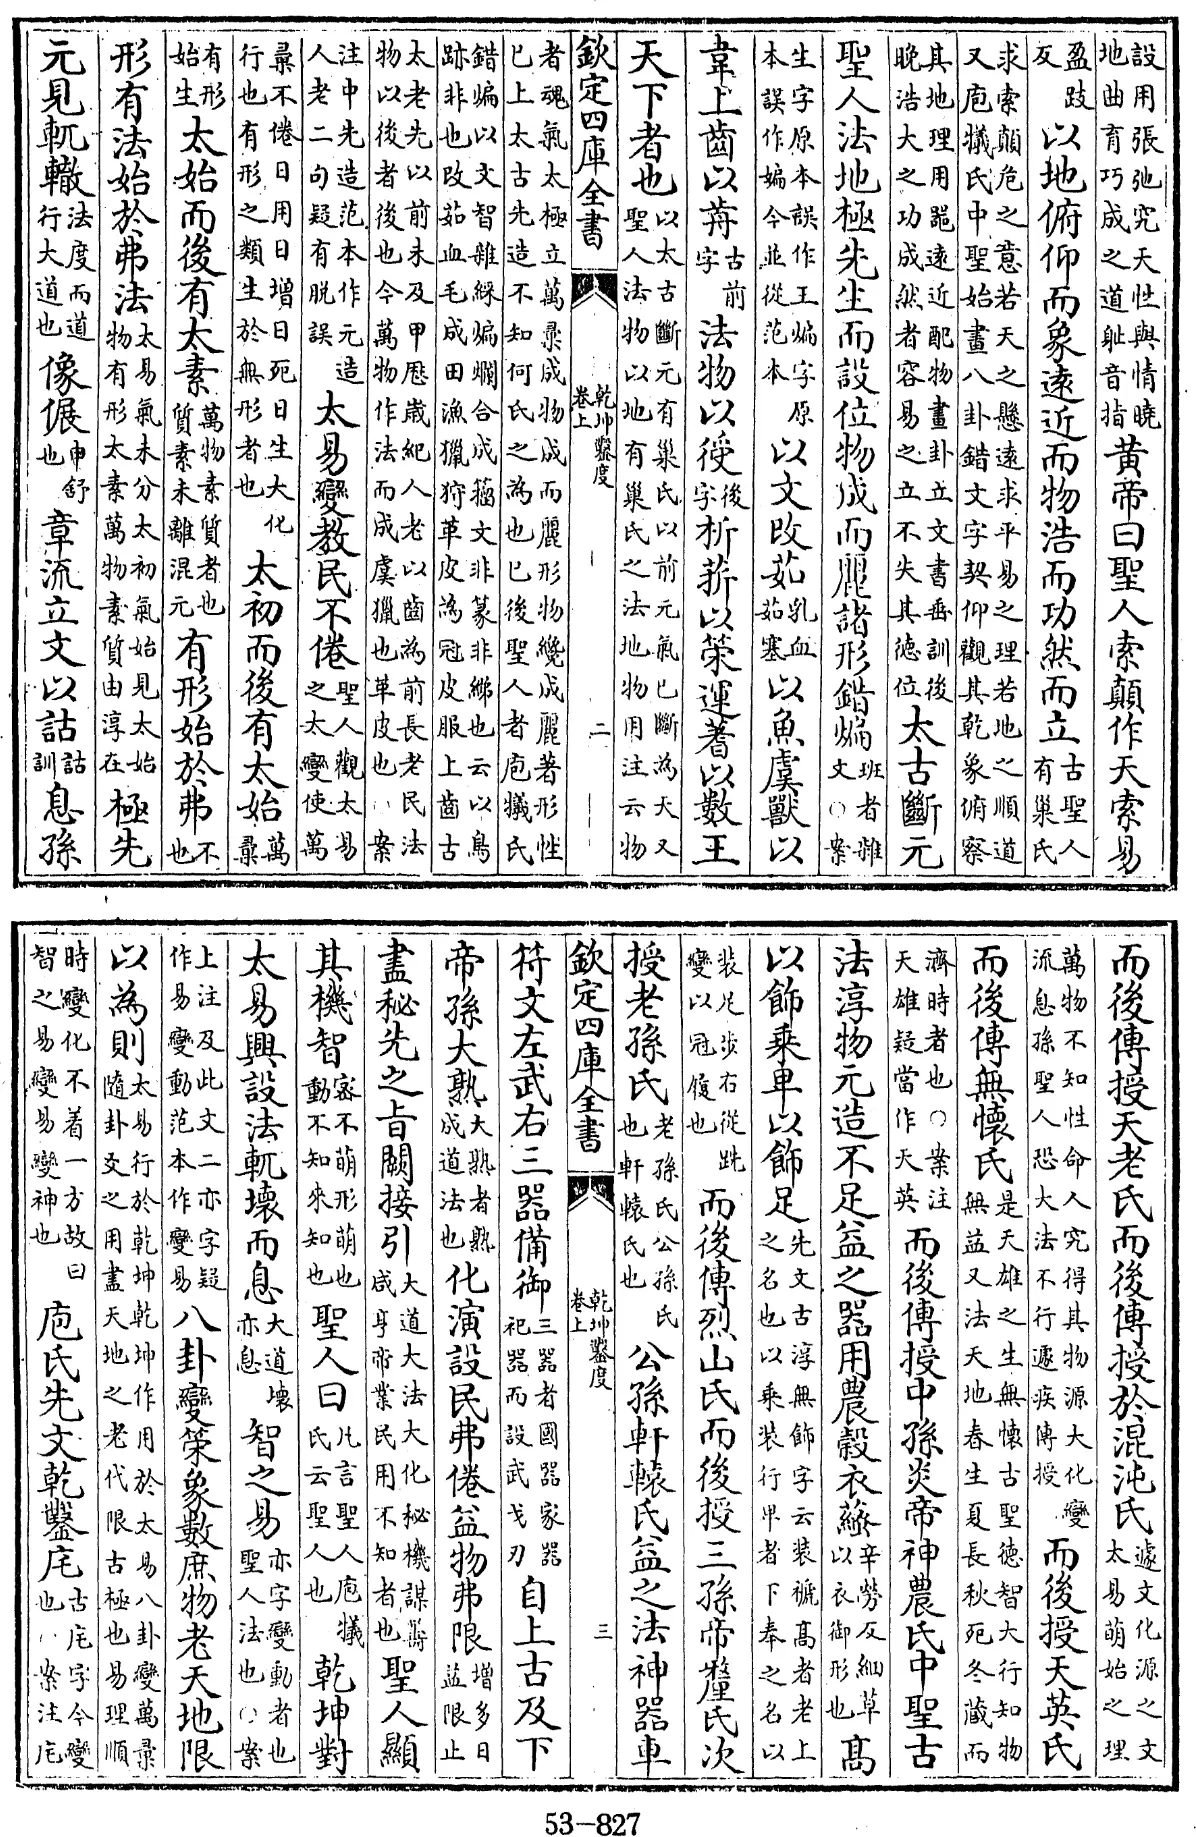 設用張弛究天性與情曉地曲育巧成之道耻音指黃帝曰聖人索顛作天索易
盈跂反以地俯仰而象遠近而物浩而功然而立古聖人有巢氏
求索顛危之意若天之懸遠求平易之理若地之順道又庖犧氏中聖始畫八卦錯文字契仰觀其乾象俯察
其地理用器遠近配物畫卦立文書垂訓後晚浩大之功成然者容易之立不失其德位太古斷元
聖人法地極先生而設位物成而麗諸形錯煸班者雜文〇案
生字原本誤作王煸字原本誤作媥今並從范本以文改茹乳血茹塞以魚虞獸以
韋上齒以古前字法物以後字析薪以策運蓍以數王
天下者也以太古斷元有巢氏以前元氣已斷為天又聖人法物以地有巢氏之法地物用注云物
欽定四庫全書 乾坤鑿度卷上 二
者魂氣太極立萬彙成物成而麗形物纔成麗著形性已上太古先造不知何氏之為也已後聖人者庖犧氏
錯煸以文智雜綵煸爛合成籀文非篆非緜也云以鳥跡非也改茹血毛成田漁獵狩革皮為冠皮服上齒古
太老先以前未及甲厯歲紀人老以齒為前長老民法物以後者後也今萬物作法而成虞獵也革皮也〇案
注中先造范本作元造人老二句疑有脫誤太易變教民不倦聖人觀太易之太變使萬
彙不倦日用日增日死日生大化行也有形之類生於無形者也太初而後有太始萬彙
有形始生太始而後有太素萬物素質者也質素未離混元有形始於弗不也
形有法始於弗法太易氣未分太初氣始見太始物有形太素萬物素質由淳在極先
元見軏轍法度而道行大道也像申舒也章流立文以詁詁訓息孫
而後傳授天老氏而後傳授於混沌氏遽文化源之文太易萌始之理
萬物不知性命人究得其物源大化變流息孫聖人恐大法不行遽疾傳授而後授天英氏
而後傳無懷氏是天雄之生無懷古聖德智大行知物無益又法天地春生夏長秋死冬藏而
濟時者也〇案注天雄疑當作天英而後傳授中孫炎帝神農氏中聖古
法淳物元造不足益之器用農穀衣蕬辛勞反細草以衣御形也高
以飾乘車以飾足先文古淳無飾字云裝褫高者老上之名也以乘裝行卑者下奉之名以
裝足步右從跣變以冠履也而後傳烈山氏而後授三孫帝釐氏次
授老孫氏老孫氏公孫氏也軒轅氏也公孫軒轅氏益之法神器車
欽定四庫全書 乾坤鑿度卷上 三
符文左武右三器備御三器者國器家器祀器而設武戈刃自上古及下
帝孫大熟大熟者熟成道法也化演設民弗倦益物弗限增多日益限止
盡秘先之旨闢接引大道大法大化秘機謀籌咸亨帝業民用不知者也聖人顯
其機智密不萌形萌也動不知來知也聖人曰凡言聖人庖犧氏云聖人也乾坤對
太易興設法軏壞而息大道壞亦息智之易亦字變動者也聖人法也〇案
上注及此文二亦字疑作易變動范本作變易八卦變策象數庶物老天地限
以為則太易行於乾坤乾坤作用於太易八卦變萬彙隨卦爻之用盡天地之老代限古極也易理順
時變化不着一方故曰智之易變易變神也庖氏先文乾鑿庑古庑字今變也〇案注庑
53-827